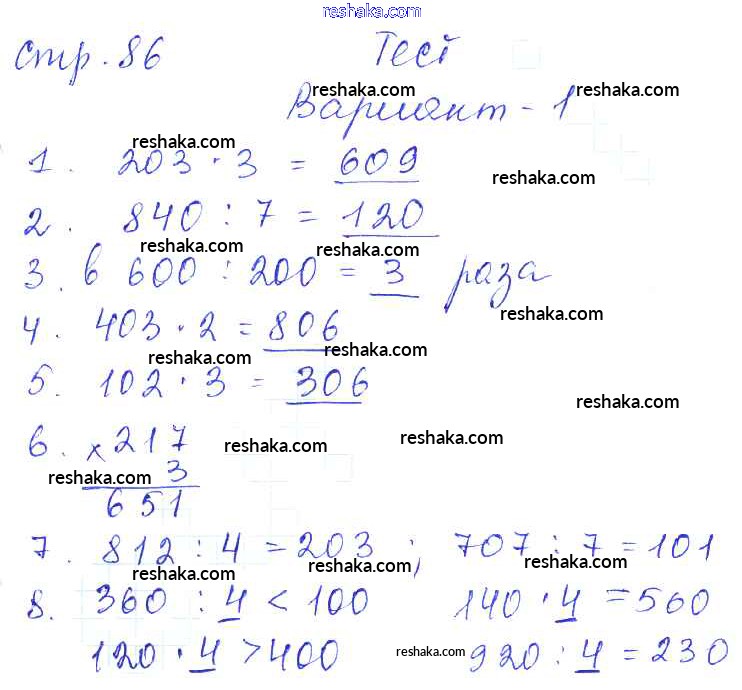 reshaka.com
стр. 86 Тест
reshaka.com reshaka.com
Вариант - 1
reshaka.com
1. 203 · 3 = 609
reshaka.com reshaka.com
2. 840 : 7 = 120
reshaka.com reshaka.com
3. в 600 : 200 = 3 раза
reshaka.com
4. 403 · 2 = 806
reshaka.com reshaka.com
5. 102 · 3 = 306
reshaka.com
6. × 217
reshaka.com reshaka.com
reshaka.com 3
651
7. 812 : 4 = 203 ; 707 : 7 = 101
reshaka.com reshaka.com reshaka.com
8. 360 : 4 < 100 140 · 4 = 560
reshaka.com reshaka.com
120 · 4 > 400 920 : 4 = 230
reshaka.com reshaka.com